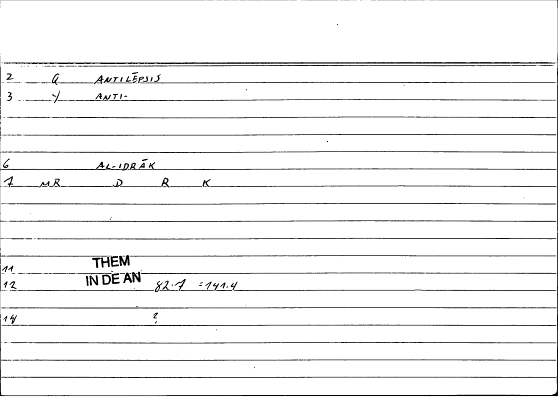 2 G ANTILĒPSIS
3 Y ANTI-
6 AL-IDRĀK
7 MR D R K
11 THEM
12 IN DE AN 82.7 =141.4
14 ?